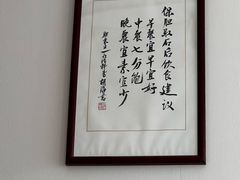 保胆取石后饮食建议
早餐宜早宜好
中餐七分饱
晚餐宜素宜少